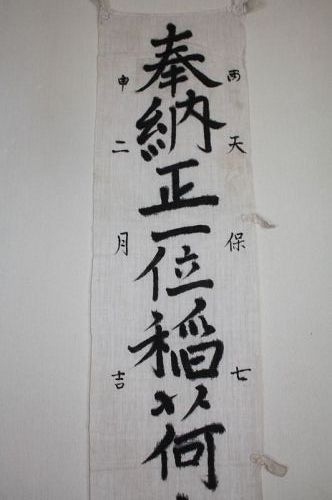 天保七
奉納正一位稲荷
申二月吉